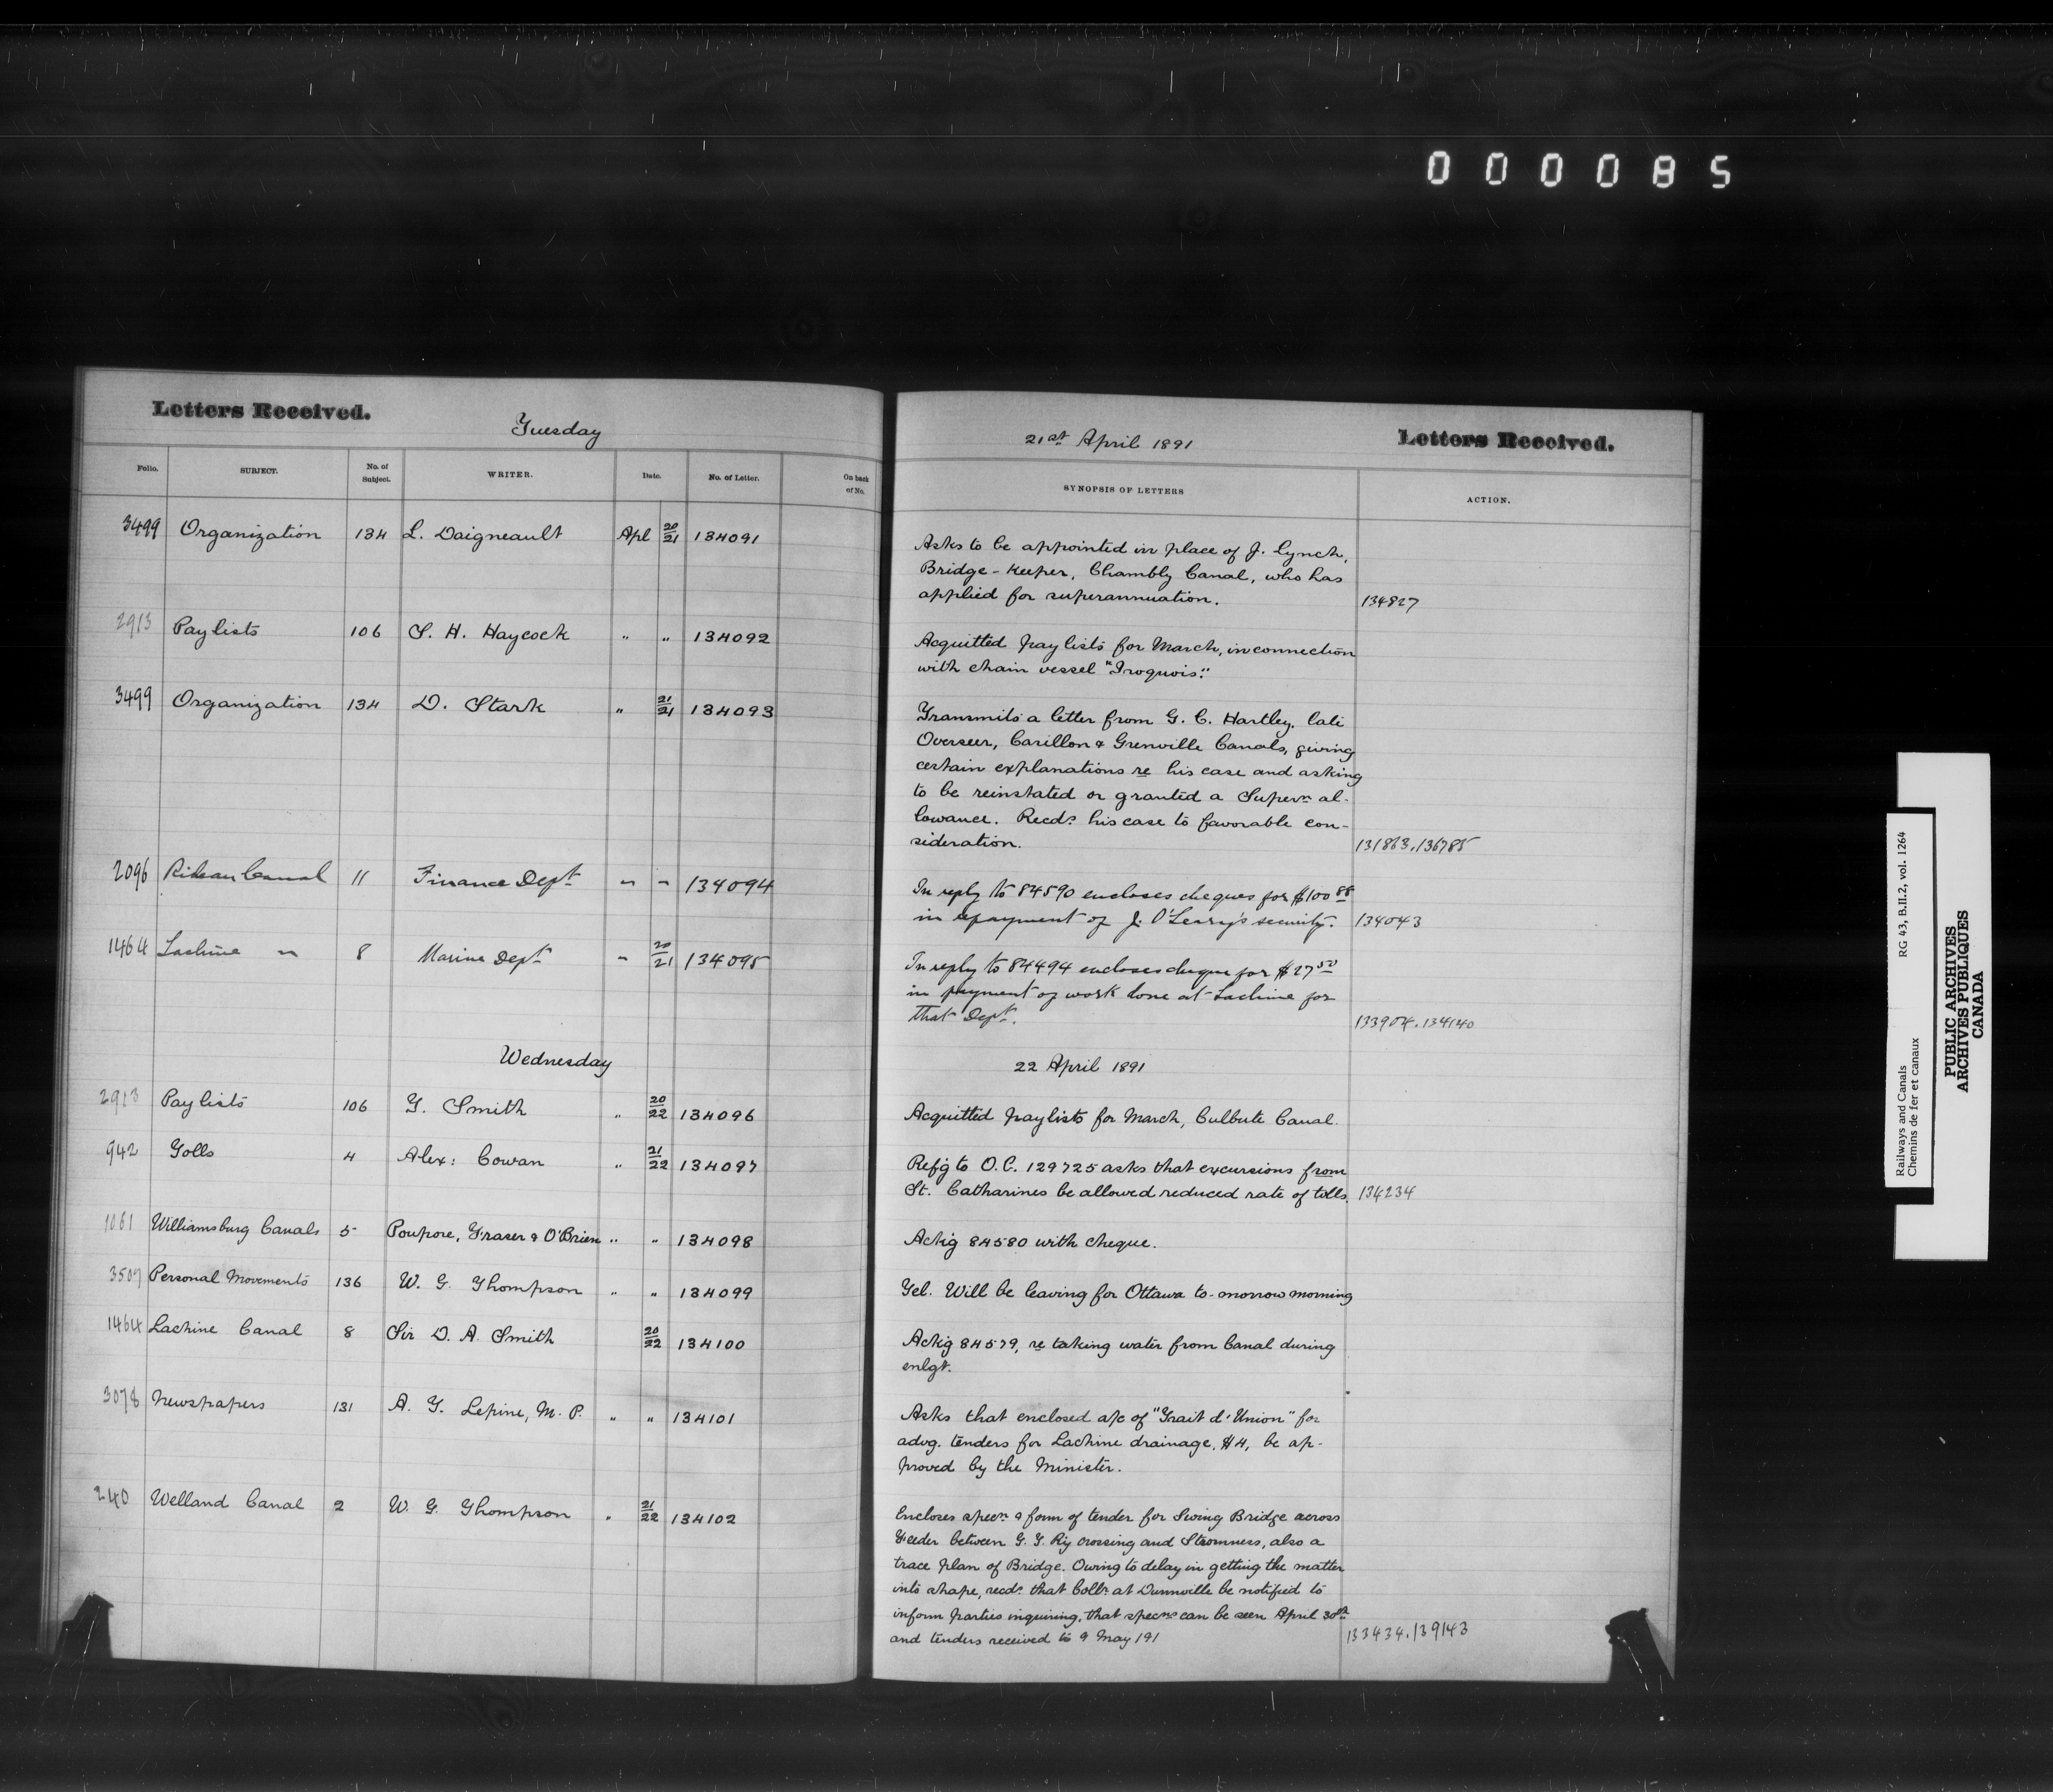 000085
Letters Received.
Tuesday
21st April 1891
Letters Received.
Folio. SUBJECT. No. of Subject. WRITER. Date. No. of Letter. On back of No. SYNOPSIS OF LETTERS ACTION.
3499 Organization 134 L. Daigneault Apl 20/21 134091
Asks to be appointed in place of J. Lynch,
Bridge-Keeper, Chambly Canal, who has
applied for superannuation. 134827
2913 Paylists 106 S. H. Haycock " " 134092
Acquitted paylists for March, in connection
with chain vessel "Iroquois".
3499 Organization 134 D. Stark " 21/21 134093
Transmits a letter from G. C. Hartley, late
Overseer, Carillon & Grenville Canals, giving
certain explanations re his case and asking
to be reinstated or granted a Supern. al-
lowance. Recds. his case to favorable con-
sideration. 131863.136785
2096 Rideau Canal 11 Finance Dept " " 134094
In reply to 84590 encloses cheques for $100 88
in repayment of J. O'Leary's security. 134043
1464 Lachine " 8 Marine Dept " 20/21 134095
In reply to 84494 encloses cheque for $27 50
in payment of work done at Lachine for
that Dept. 133904.134140
Wednesday
22 April 1891
2913 Paylists 106 T. Smith " 20/22 134096
Acquitted paylists for March, Culbute Canal.
942 Tolls 4 Alex: Cowan " 21/22 134097
Refg to O.C. 129725 asks that excursions from
St. Catharines be allowed reduced rate of tolls. 134234
1061 Williamsburg Canals 5 Poupore, Fraser & O'Brien " " 134098
Ackg 84580 with cheque.
3507 Personal Movements 136 W. G. Thompson " " 134099
Tel. Will be leaving for Ottawa to-morrow morning
1464 Lachine Canal 8 Sir D. A. Smith 20/22 134100
Ackg 84579, re taking water from Canal during
enlgt.
3078 Newspapers 131 A. T. Lepine, M. P. " " 134101
Asks that enclosed a/c of "Trait d'Union" for
advg. tenders for Lachine drainage, $4, be ap-
proved by the Minister.
240 Welland Canal 2 W. G. Thompson " 21/22 134102
Encloses specn. & form of tender for Swing Bridge across
Feeder between G. T. Ry crossing and Stromness, also a
trace plan of Bridge. Owing to delay in getting the matter
into shape, recds. that Collr. at Dunnville be notified to
inform parties inquiring, that specns can be seen April 30th
and tenders received to 9 May 191 133434.139143
Railways and Canals RG 43, B.II.2, vol. 1264
Chemins de fer et canaux
PUBLIC ARCHIVES
ARCHIVES PUBLIQUES
CANADA